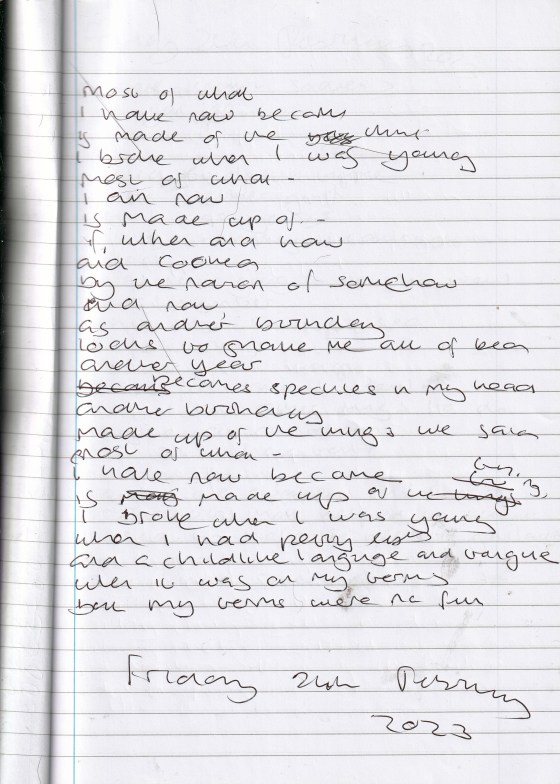 most of what
I have now became
is made of the
I broke when I was young
most of what -
I am now
is made up of -
if, when and how
and
by the of somehow
and now
as another birthday
looks to me all of been
another year
becomes speckles in my head
another birthday
made up of the things we said
most of what -
I have now became
is made up of the
I broke when I was young
when I had eyes
and a childlike language and tongue
when it was on my terms
but my terms were no fun
Friday
2023